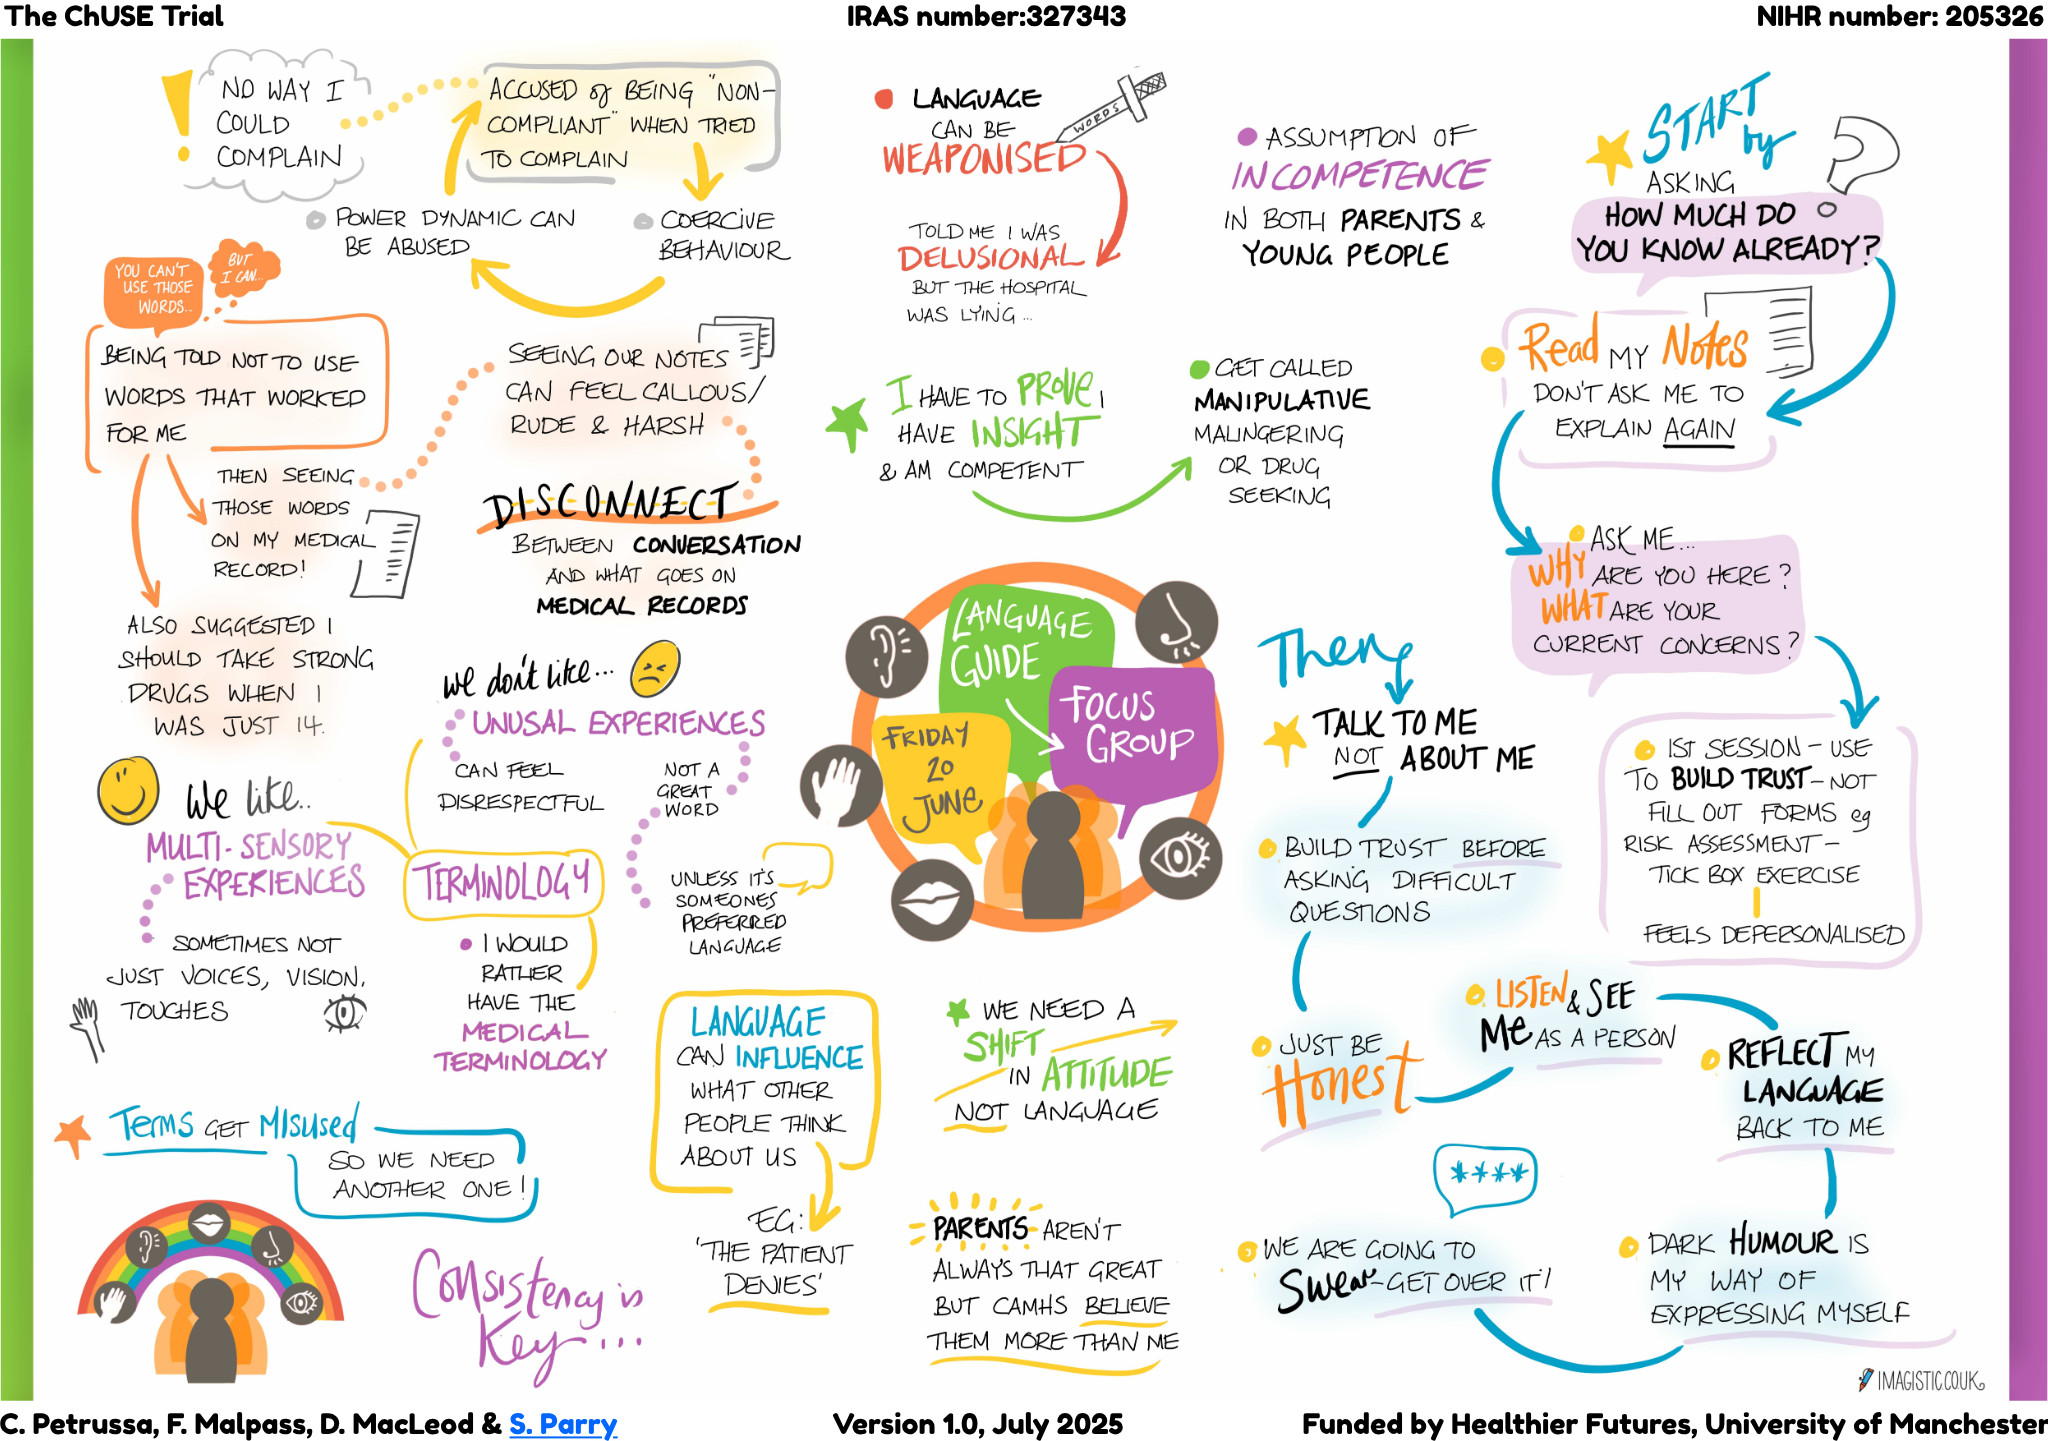 The ChUSE Trial
IRAS number:327343
NIHR number: 205326
NO WAY I
COULD
COMPLAIN
ACCUSED of BEING "NON-
COMPLIANT" WHEN TRIED
TO COMPLAIN
POWER DYNAMIC CAN
BE ABUSED
COERCIVE
BEHAVIOUR
YOU CAN'T
USE THOSE
WORDS...
BUT
I CAN...
BEING TOLD NOT TO USE
WORDS THAT WORKED
FOR ME
THEN SEEING
THOSE WORDS
ON MY MEDICAL
RECORD!
ALSO SUGGESTED I
SHOULD TAKE STRONG
DRUGS WHEN I
WAS JUST 14.
SEEING OUR NOTES
CAN FEEL CALLOUS/
RUDE & HARSH
DISCONNECT
BETWEEN CONVERSATION
AND WHAT GOES ON
MEDICAL RECORDS
we don't like...
UNUSAL EXPERIENCES
CAN FEEL
DISRESPECTFUL
NOT A
GREAT
WORD
UNLESS IT'S
SOMEONES
PREFERRED
LANGUAGE
We like..
MULTI-SENSORY
EXPERIENCES
SOMETIMES NOT
JUST VOICES, VISION,
TOUCHES
TERMINOLOGY
I WOULD
RATHER
HAVE THE
MEDICAL
TERMINOLOGY
Terms GET MISUSED
SO WE NEED
ANOTHER ONE!
Consistency is
Key...
LANGUAGE
CAN INFLUENCE
WHAT OTHER
PEOPLE THINK
ABOUT US
EG:
'THE PATIENT
DENIES'
LANGUAGE
CAN BE
WEAPONISED
WORDS
TOLD ME I WAS
DELUSIONAL
BUT THE HOSPITAL
WAS LYING...
ASSUMPTION OF
INCOMPETENCE
IN BOTH PARENTS &
YOUNG PEOPLE
I HAVE TO PROVE I
HAVE INSIGHT
& AM COMPETENT
GET CALLED
MANIPULATIVE
MALINGERING
OR DRUG
SEEKING
LANGUAGE
GUIDE
FOCUS
GROUP
FRIDAY
20
JUNE
WE NEED A
SHIFT
IN ATTITUDE
NOT LANGUAGE
PARENTS AREN'T
ALWAYS THAT GREAT
BUT CAMHS BELIEVE
THEM MORE THAN ME
START
by
ASKING
HOW MUCH DO
YOU KNOW ALREADY?
Read MY Notes
DON'T ASK ME TO
EXPLAIN AGAIN
ASK ME...
WHY ARE YOU HERE?
WHAT ARE YOUR
CURRENT CONCERNS?
1ST SESSION - USE
TO BUILD TRUST - NOT
FILL OUT FORMS eg
RISK ASSESSMENT -
TICK BOX EXERCISE
FEELS DEPERSONALISED
Then
TALK TO ME
NOT ABOUT ME
BUILD TRUST BEFORE
ASKING DIFFICULT
QUESTIONS
JUST BE
Honest
LISTEN & SEE
Me AS A PERSON
REFLECT MY
LANGUAGE
BACK TO ME
DARK HUMOUR IS
MY WAY OF
EXPRESSING MYSELF
****
WE ARE GOING TO
Swear - GET OVER IT!
IMAGISTIC.CO.UK
C. Petrussa, F. Malpass, D. MacLeod & S. Parry
Version 1.0, July 2025
Funded by Healthier Futures, University of Manchester